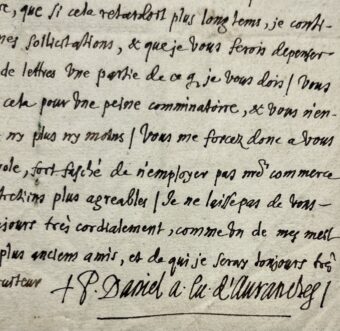 re, que si cela retardoit plus longtems, je conti-
mes sollicitations, & que je vous ferois depenser
de lettres vne partie de ce q, je vous dois / vous
cela pour vne peine comminatoire, & vous n'en-
ny plus ny moins / vous me forcez donc a vous
ole, fort fasché de n'employer pas mon commerce
tretiens plus agreables / Je ne laisse pas de vous
jours très cordialement, comme vn de mes meil
plus anciens amis, et de qui je seray tousjours très
ruiteur + P. Daniel a. eu. d'Auranches /